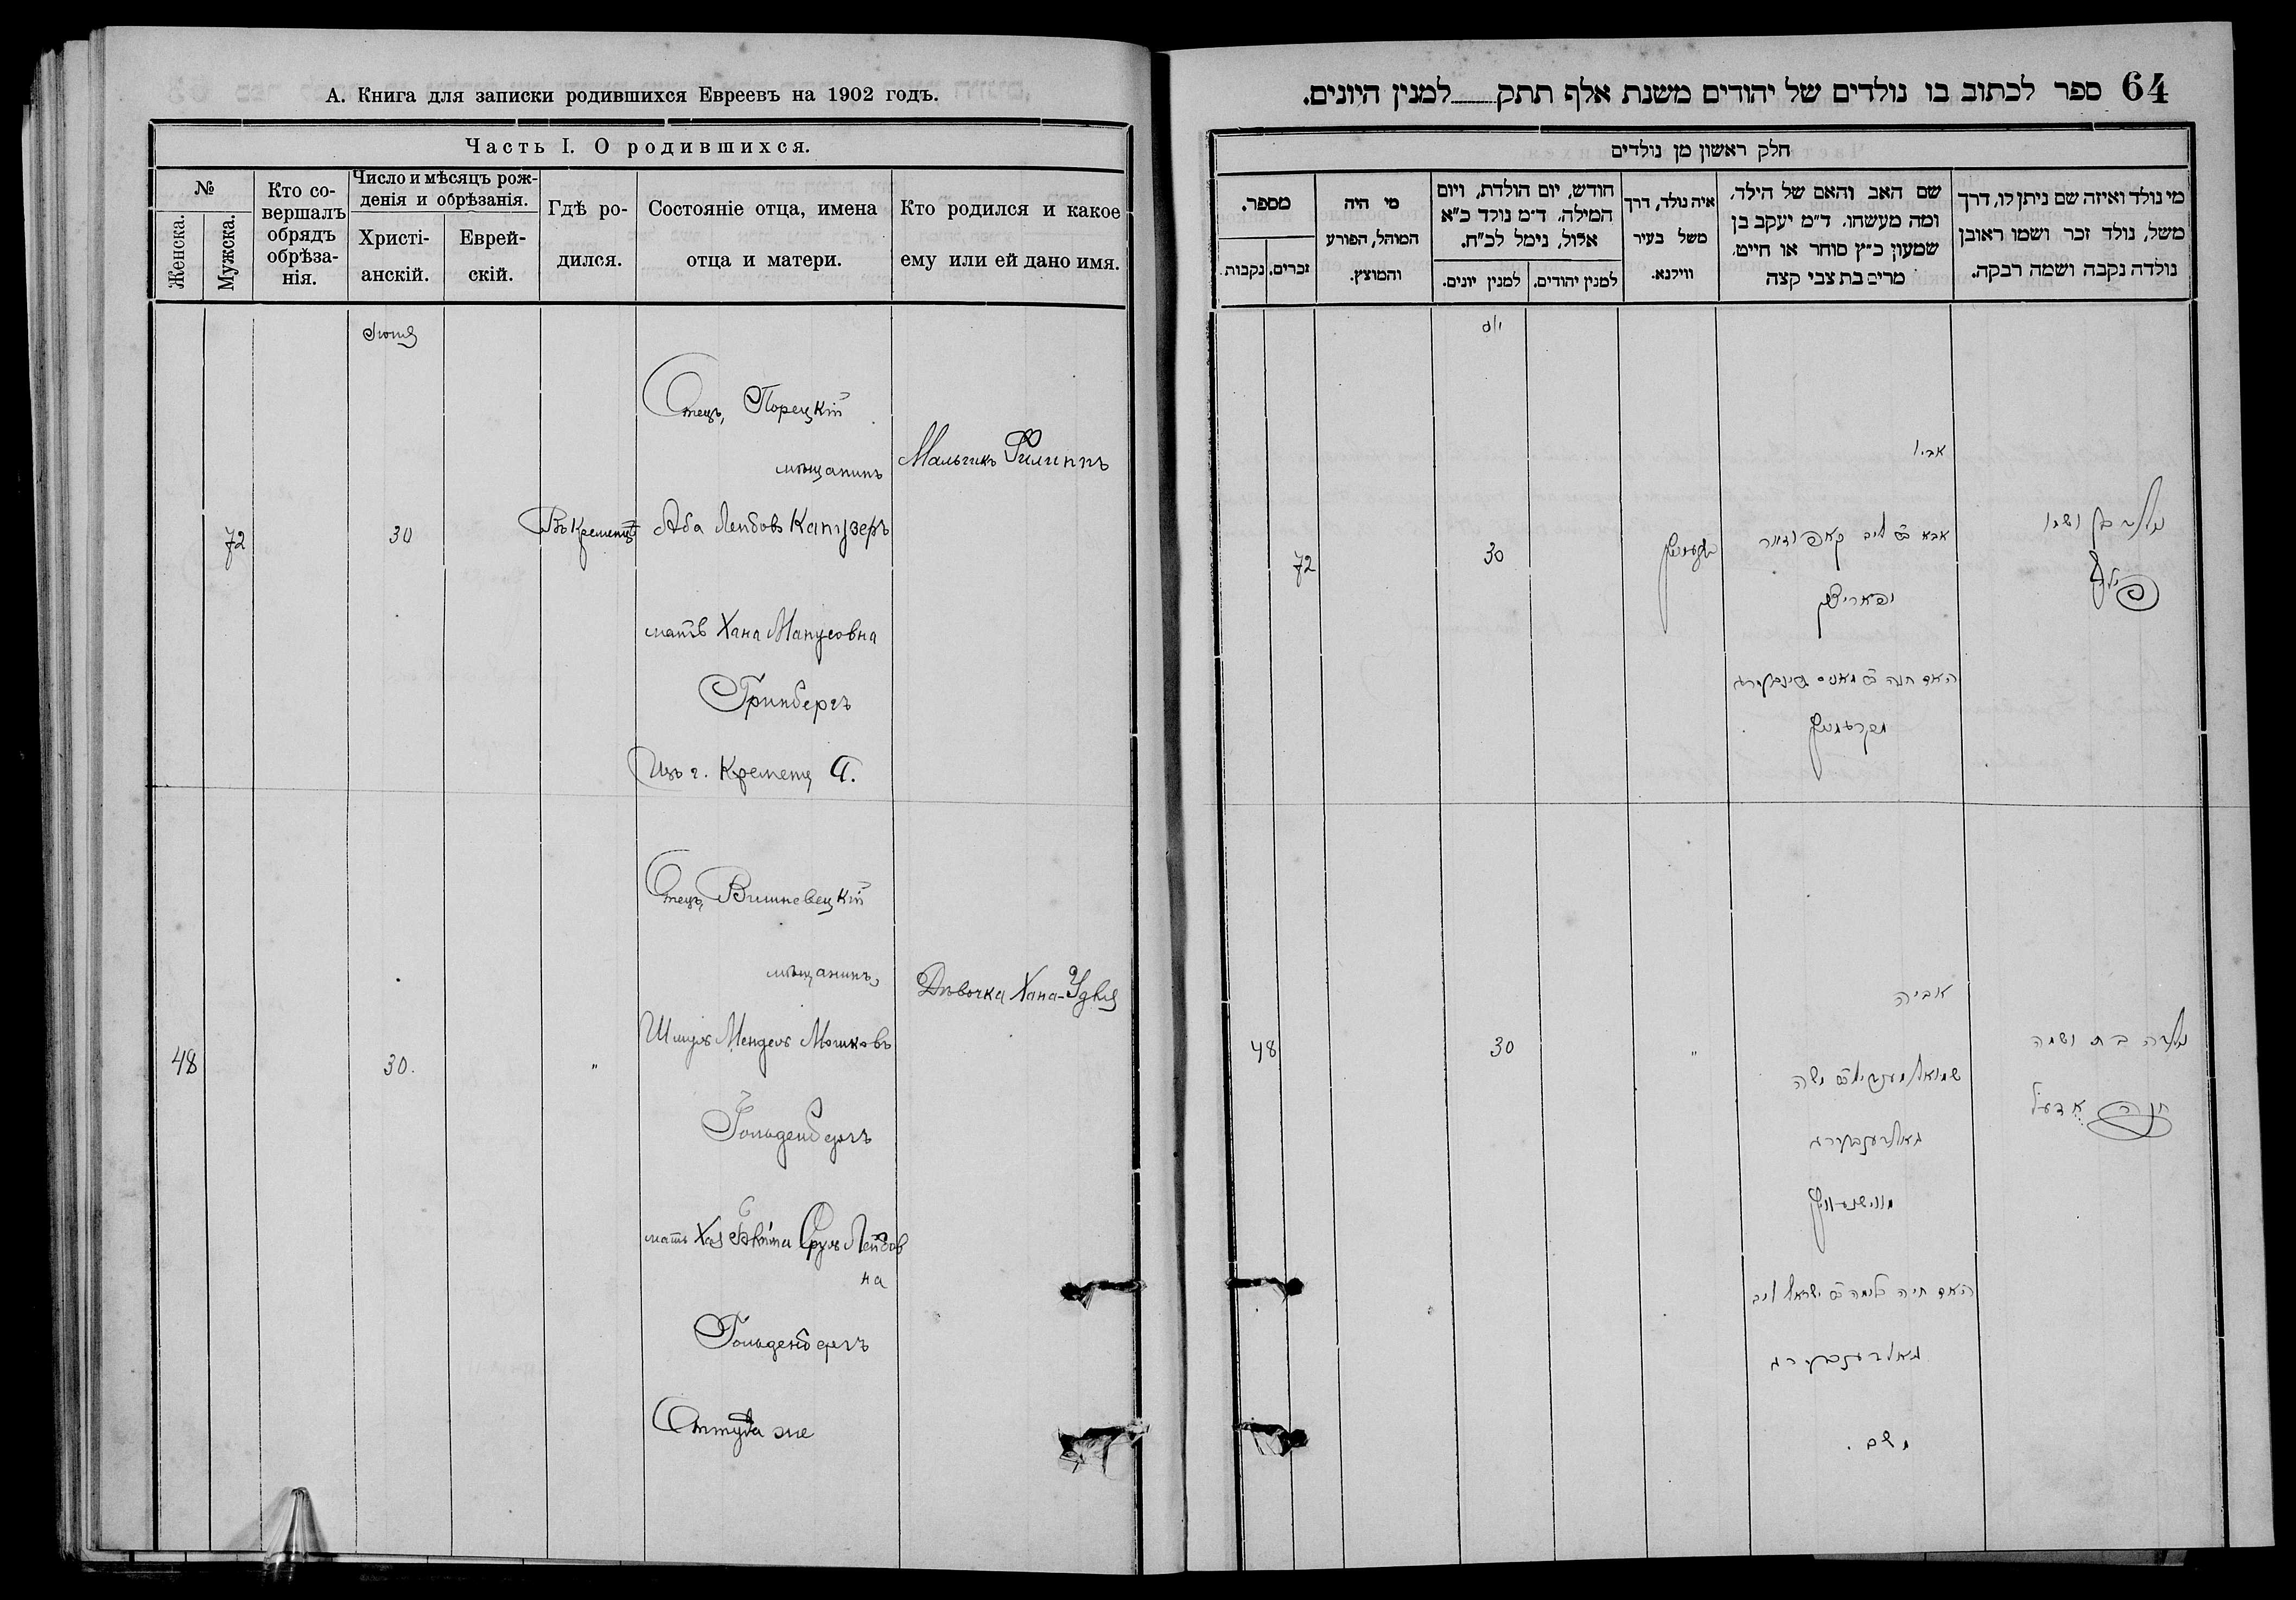 А. Книга для записки родившихся Евреевъ на 1902 годъ.
Часть I. О родившихся.
№
Женска.
Мужска.
Кто совершалъ обрядъ обрѣзанія.
Число и мѣсяцъ рожденія и обрѣзанія.
Христіанскій.
Еврейскій.
Гдѣ родился.
Состояніе отца, имена отца и матери.
Кто родился и какое ему или ей дано имя.
Отецъ, Порецкій
мѣщанинъ
Мальчикъ Филиппъ
72
30
Въ Кременцѣ
Аба Лейбовъ Капузеръ
мать Хана Манусовна
Гринбергъ
Изъ г. Кременца.
Отецъ, Вишневецкій
мѣщанинъ,
Дѣвочка Хана-
48
30.
"
Шмуль Мендель Мошковъ
Гольденбергъ
мать Срулъ Лейбов
на
Гольденбергъ
Оттуда же
64 ספר לכתוב בו נולדים של יהודים משנת אלף תתק למנין היונים.
חלק ראשון מן נולדים
מי נולד ואיזה שם ניתן לו, דרך
משל, נולד זכר ושמו ראובן
נולדה נקבה ושמה רבקה.
שם האב והאם של הילד,
ומה מעשהו. ד"מ יעקב בן
שמעון כ"ץ סוחר או חייט.
מרים בת צבי קצה
איה נולד, דרך
משל בעיר
ווילנא.
חודש, יום הולדת, ויום
המילה. ד"מ נולד כ"א
אלול, נימל לכ"ח.
למנין יהודים.
למנין יונים.
מי היה
המוהל, הפורע
והמוצץ.
מספר.
זכרים.
נקבות.
אביו
נולד בן ושמו
אבא ב"ר ליב
30
72
האם חנה ב"ר מאניס גרינבערג
מקרעמניץ
אביה
נולדה בת ושמה
חנה אדעל
שמואל מענדיל ב"ר משה
"
30
48
גאלדענבערג
מווישניוויץ
האם חיה ב"ר ישראל ליב
גאלדענבערג
משם.